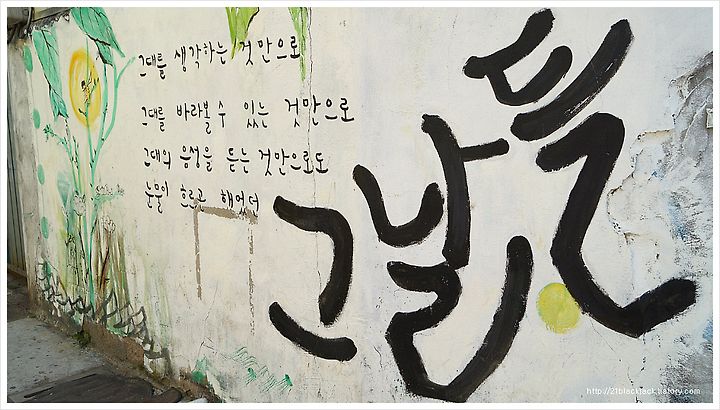 그대를 생각하는 것 만으로
그대를 바라볼 수 있는 것만으로
그대의 음성을 듣는 것만으로도
눈물이 흐르고 했었던
그 날들
http://21blackjack.tistory.com